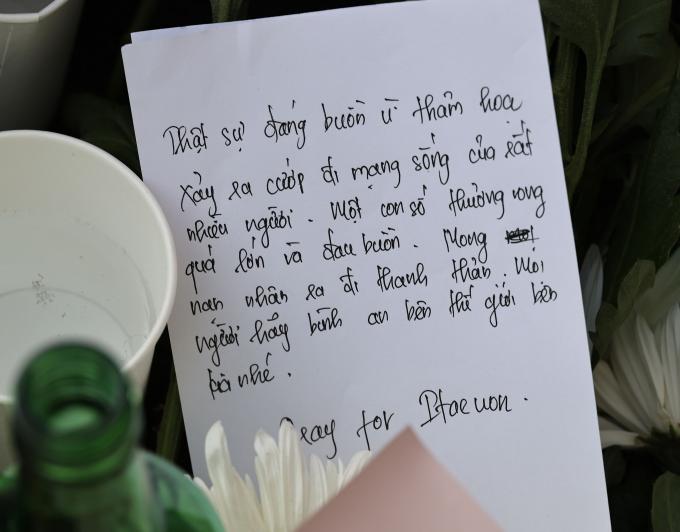 Thật sự đáng buồn vì thảm hoạ
xảy ra cướp đi mạng sống của rất
nhiều người. Một con số thương vong
quá lớn và đau buồn. Mong
nạn nhân ra đi thanh thản. Mọi
người hãy bình an bên thế giới bên
kia nhé.
Pray for Itaewon.